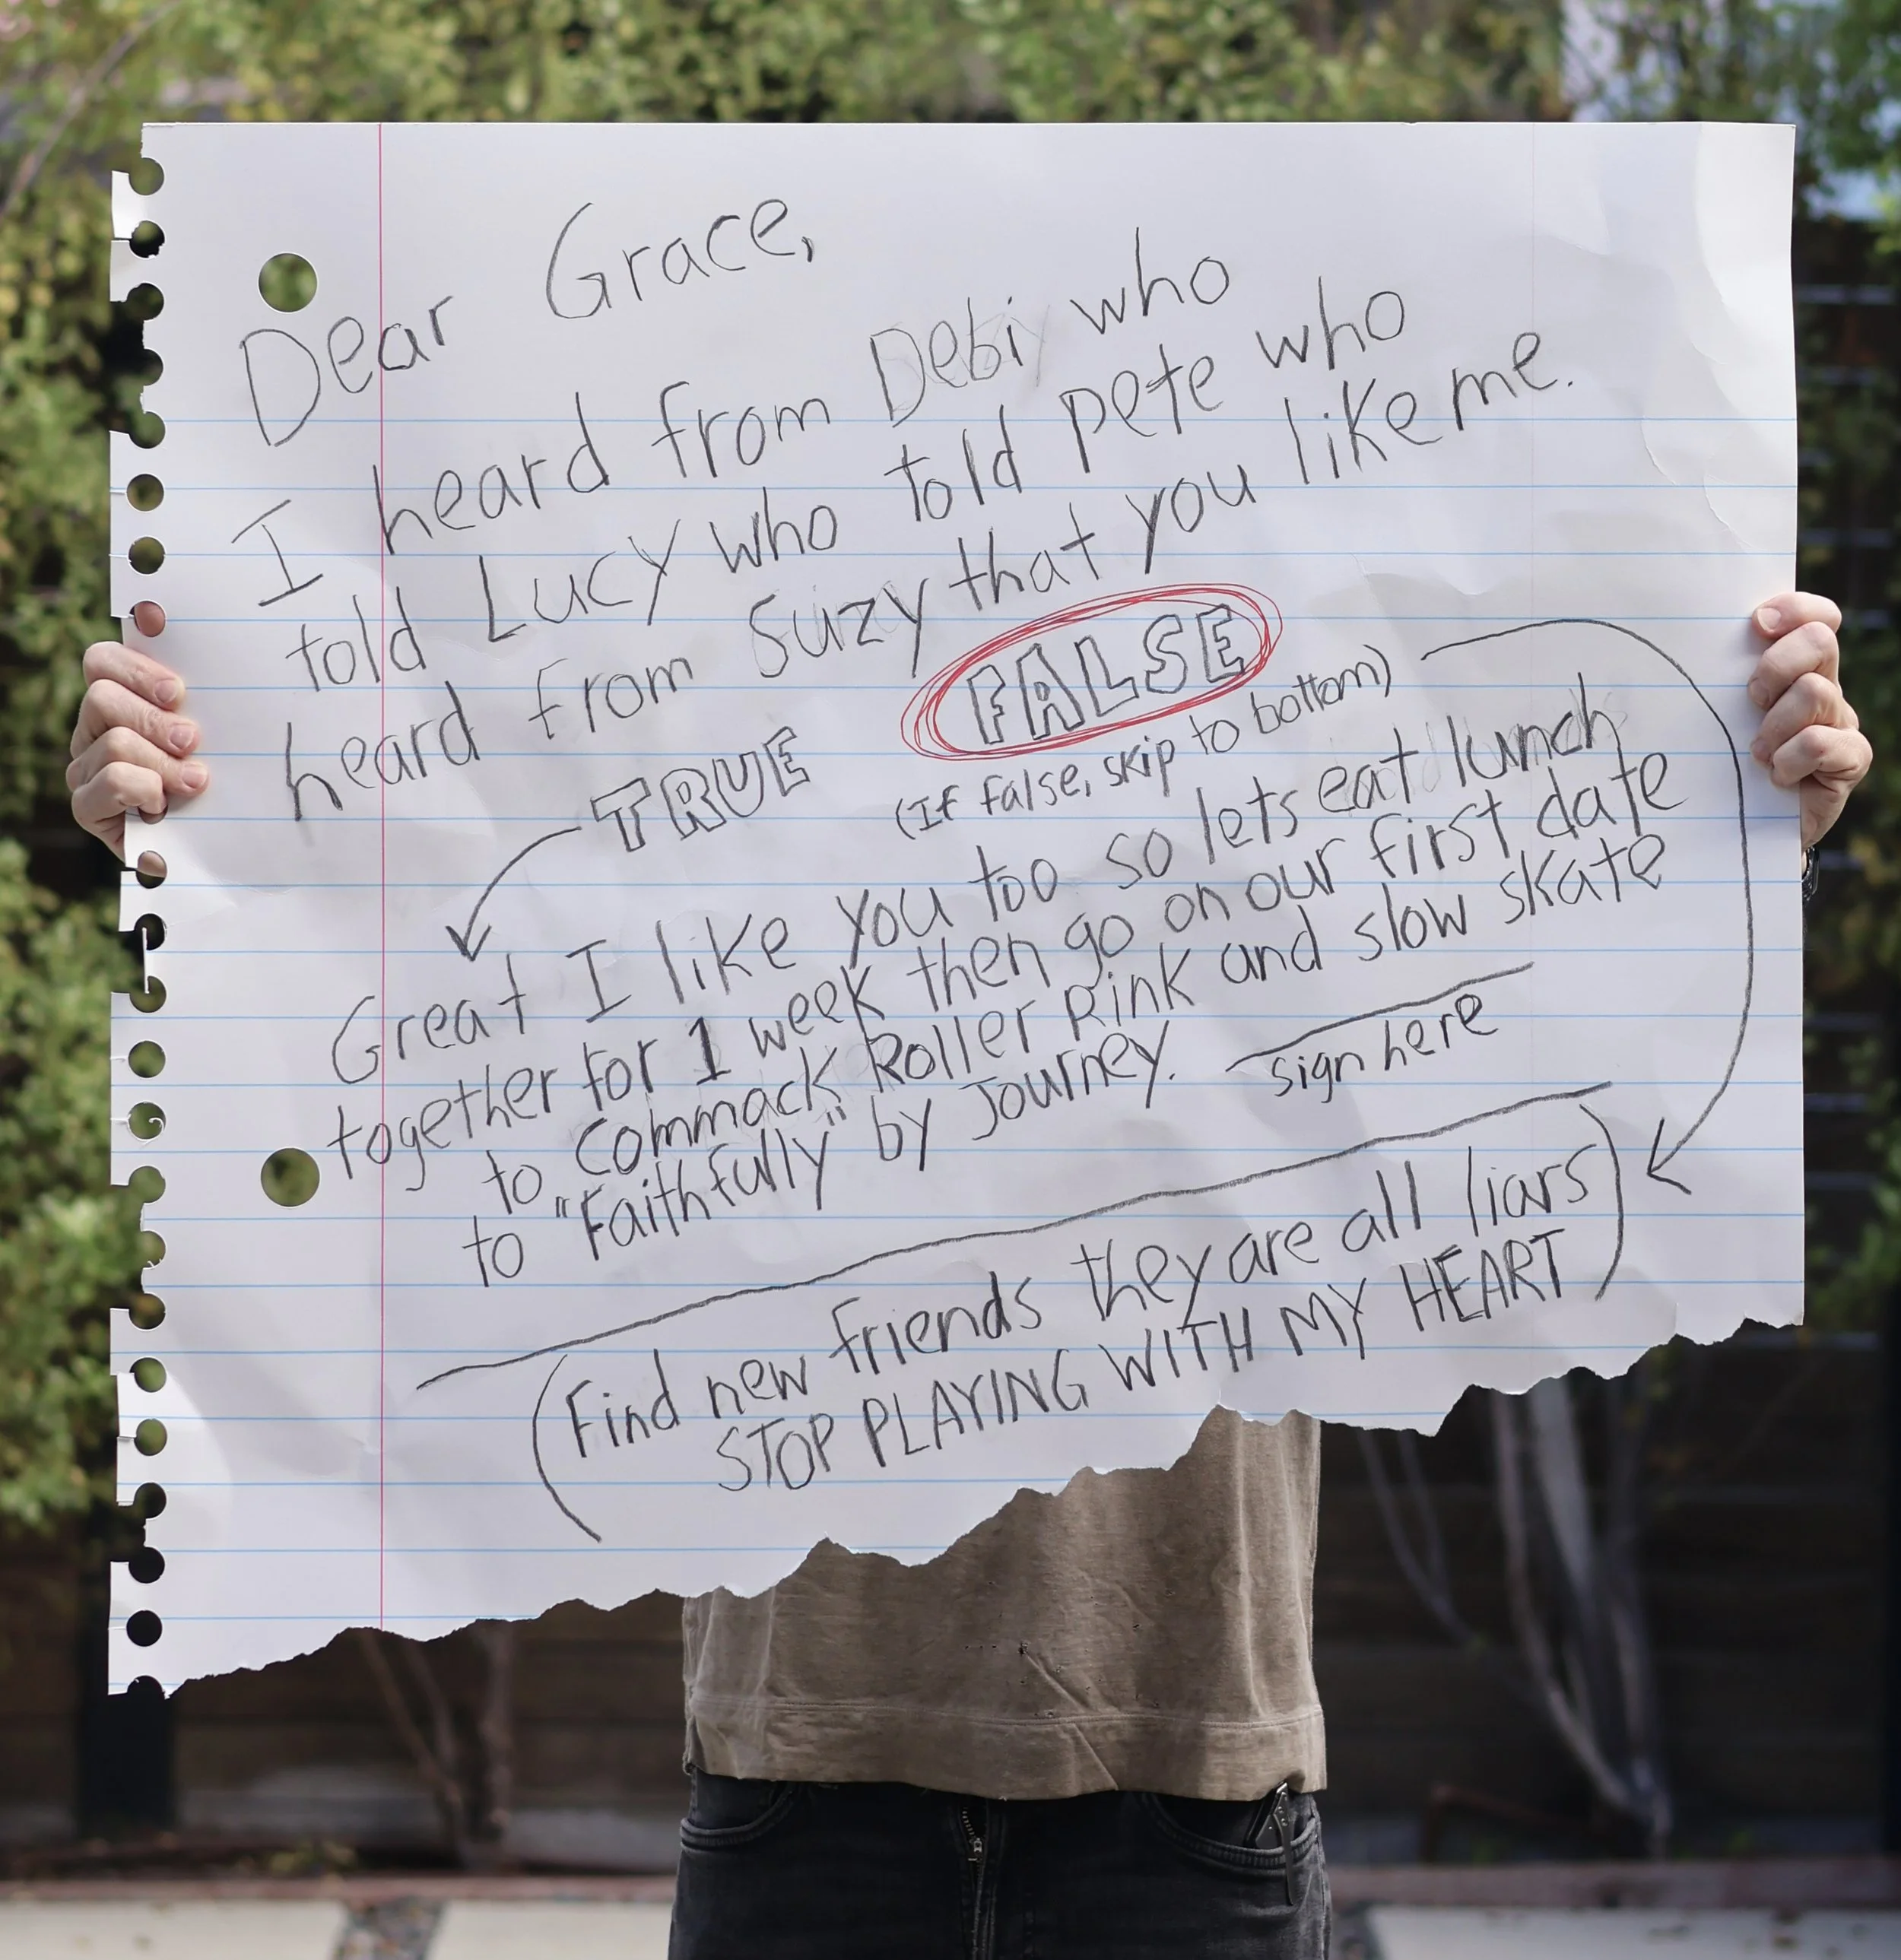 Dear Grace,
I heard from Debi who
told Lucy who told Pete who
heard from Suzy that you like me.
TRUE FALSE
(If false, skip to bottom)
Great I like you too so lets eat lunch
together for 1 week then go on our first date
to Commack Roller Rink and slow skate
to "Faithfully" by Journey.
sign here
(Find new friends they are all liars)
STOP PLAYING WITH MY HEART